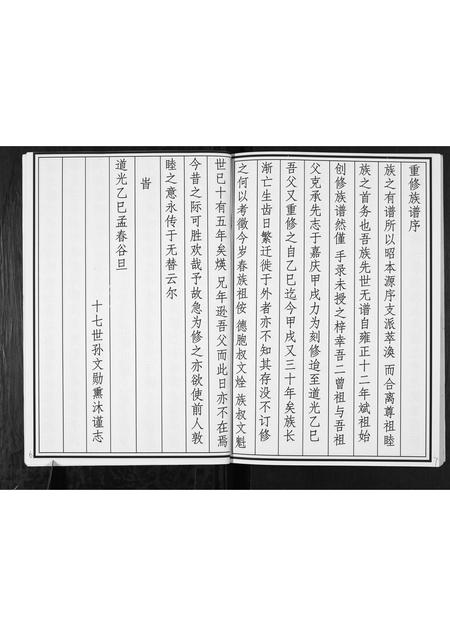 重修族谱序
族之有谱所以昭本源序支派萃涣 而合离尊祖睦
族之首务也吾族先世无谱自雍正十二年斌祖始
创修族谱然僅 手录未授之梓幸吾二曾祖与吾祖
父克承先志于嘉庆甲戌力为刻修迨至道光乙巳
吾父又重修之自乙巳迄今甲戌又三十年矣族长
渐亡生齿日繁迁徙于外者亦不知其存没不订修
之何以考徵今岁春族祖侒 德胞叔文烇 族叔文魁
世已十有五年矣煐 兄年逊吾父而此日亦不在焉
今昔之际可胜欢哉予故急为修之亦欲使前人敦
睦之意永传于无替云尔
旹
道光乙巳孟春谷旦
十七世孙文勋熏沐谨志
6
7